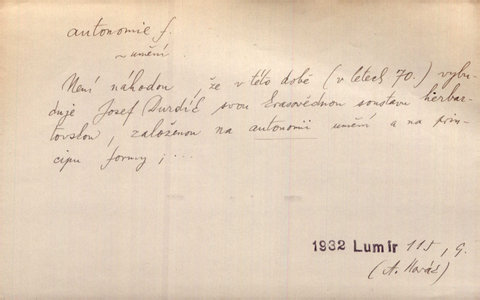 autonomie f.
~ umění
Není náhodou, že v této době (v letech 70.) vybu-
duje Josef Durdík svou krasovědnou soustavu herbar-
tovskou, založenou na autonomii umění a na prin-
cipu formy; ...
1932 Lumír 115, G.
(A. Novák)